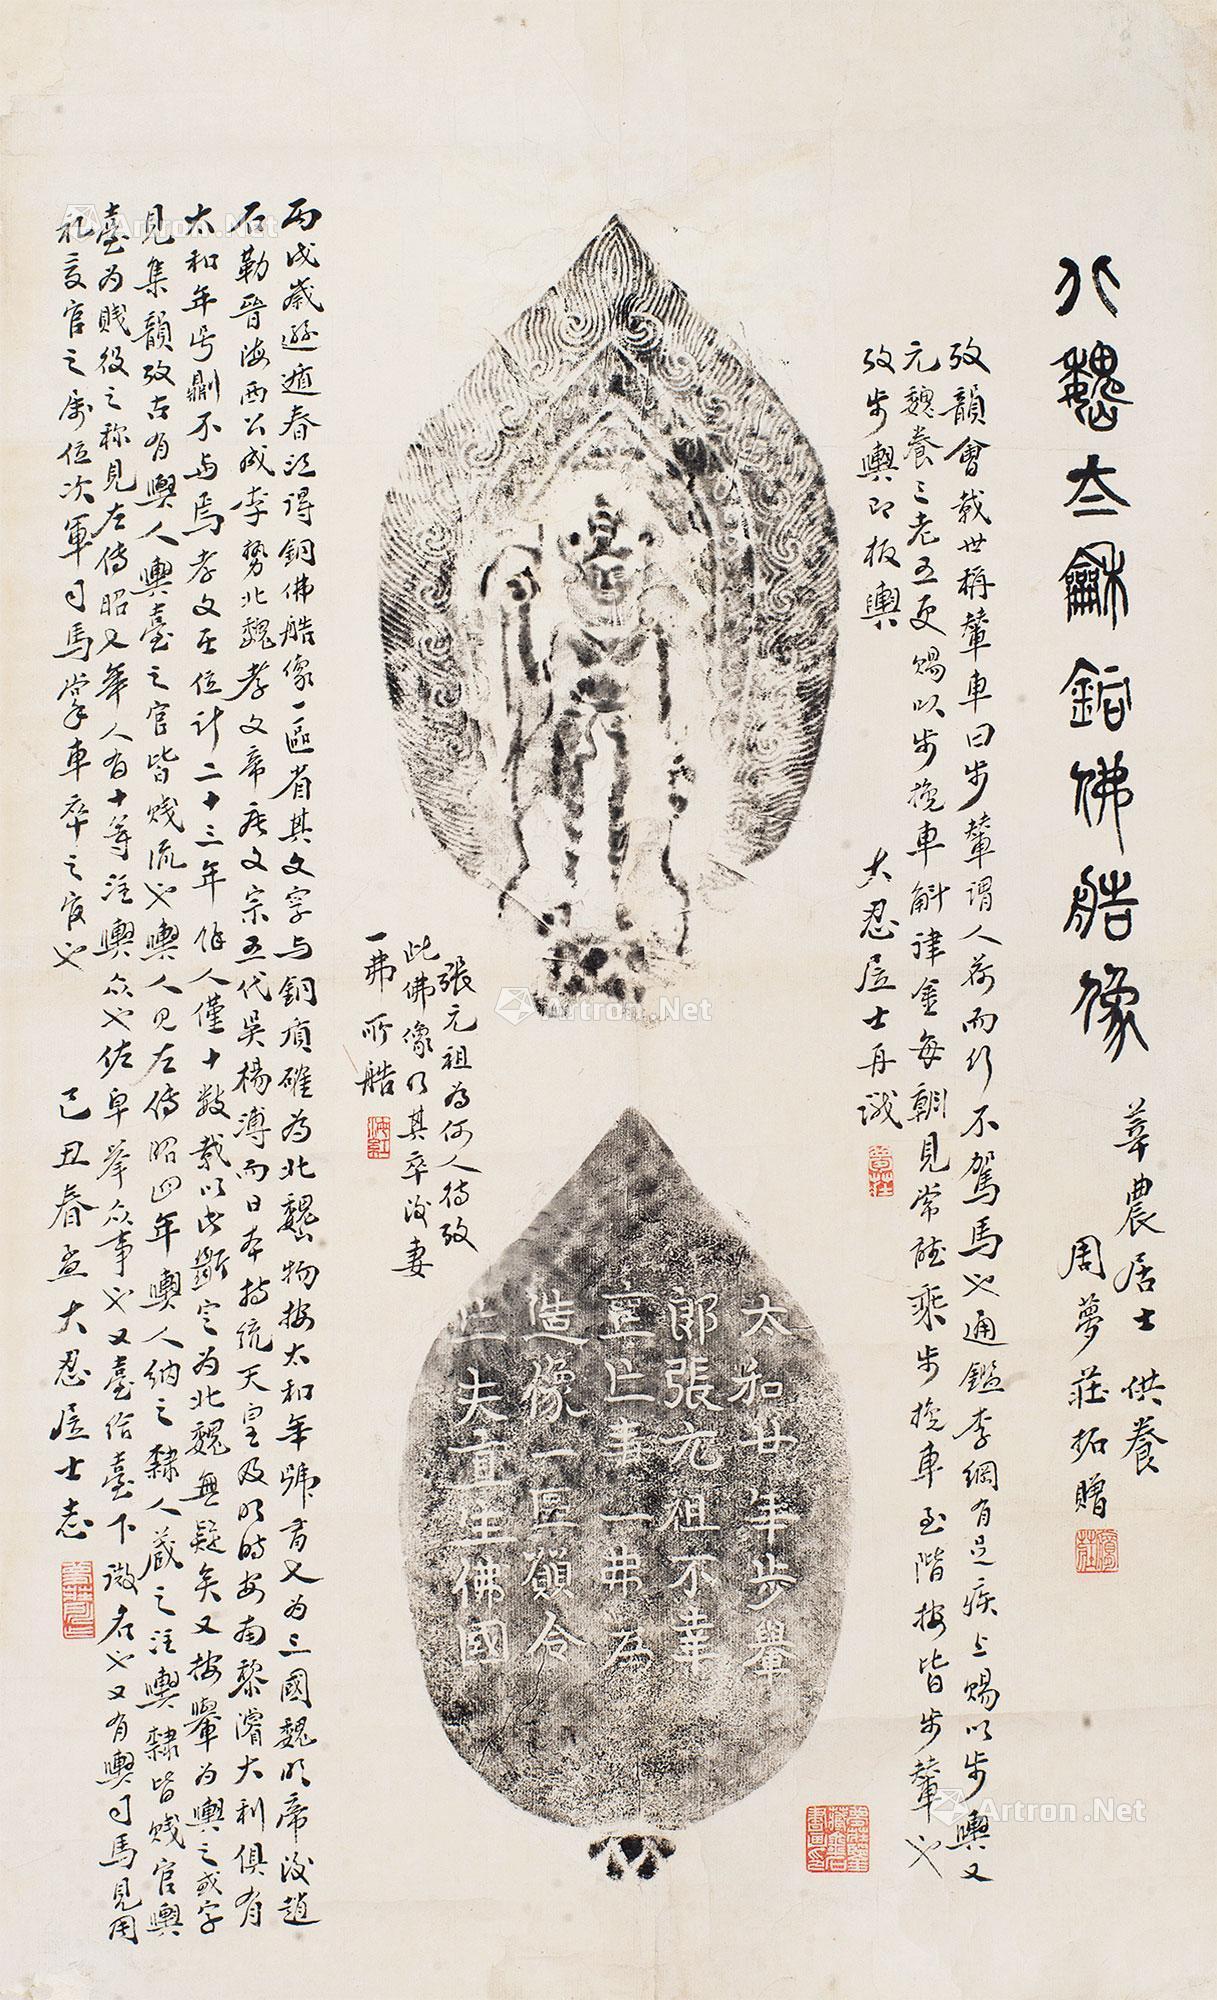 北魏太龢銅佛造像
莘農居士供養
周夢莊拓贈
攷韻會載世稱輦車曰步輦謂人荷而行不駕馬也通鑑李綱有足疾上賜以步輿又
元魏養三老五更賜以步挽車斛律金每朝見常聽乘步挽車至階按皆步輦也
攷步輿即板輿
大忍居士再識
太和廿年步轝
郎張元祖不幸
喪亡妻一弗為
造像一區願令
亡夫直生佛國
張元祖為何人待攷
此佛像乃其卒後妻
一弗所造
丙戌歲遯春江得銅佛造像一區省其文字与銅質確為北魏物按太和年號有又為三國魏明帝後趙
石勒晉海西公成李勢北魏孝文帝唐文宗五代吳楊溥而日本持統天皇及明時安南黎濬大利俱有
太和年号剿不与焉孝文在位計二十三年餘人僅十數載以此斷定為北魏無疑矣又按轝為輿之或字
見集韻攷古有輿人輿臺之官皆賤流也輿人見左傳昭四年輿人納之隸人藏之注輿隸皆賤官輿
臺為賤役之称見左傳昭七年人有十等注輿眾也佐皁舉眾事也又臺給臺下微名也又有輿司馬見周
礼夏官之屬位次軍司馬掌車卒之官也
己丑春孟大忍居士志
Artron.Net
Artron.Net
Artron.Net
Artron.Net
Artron.Net